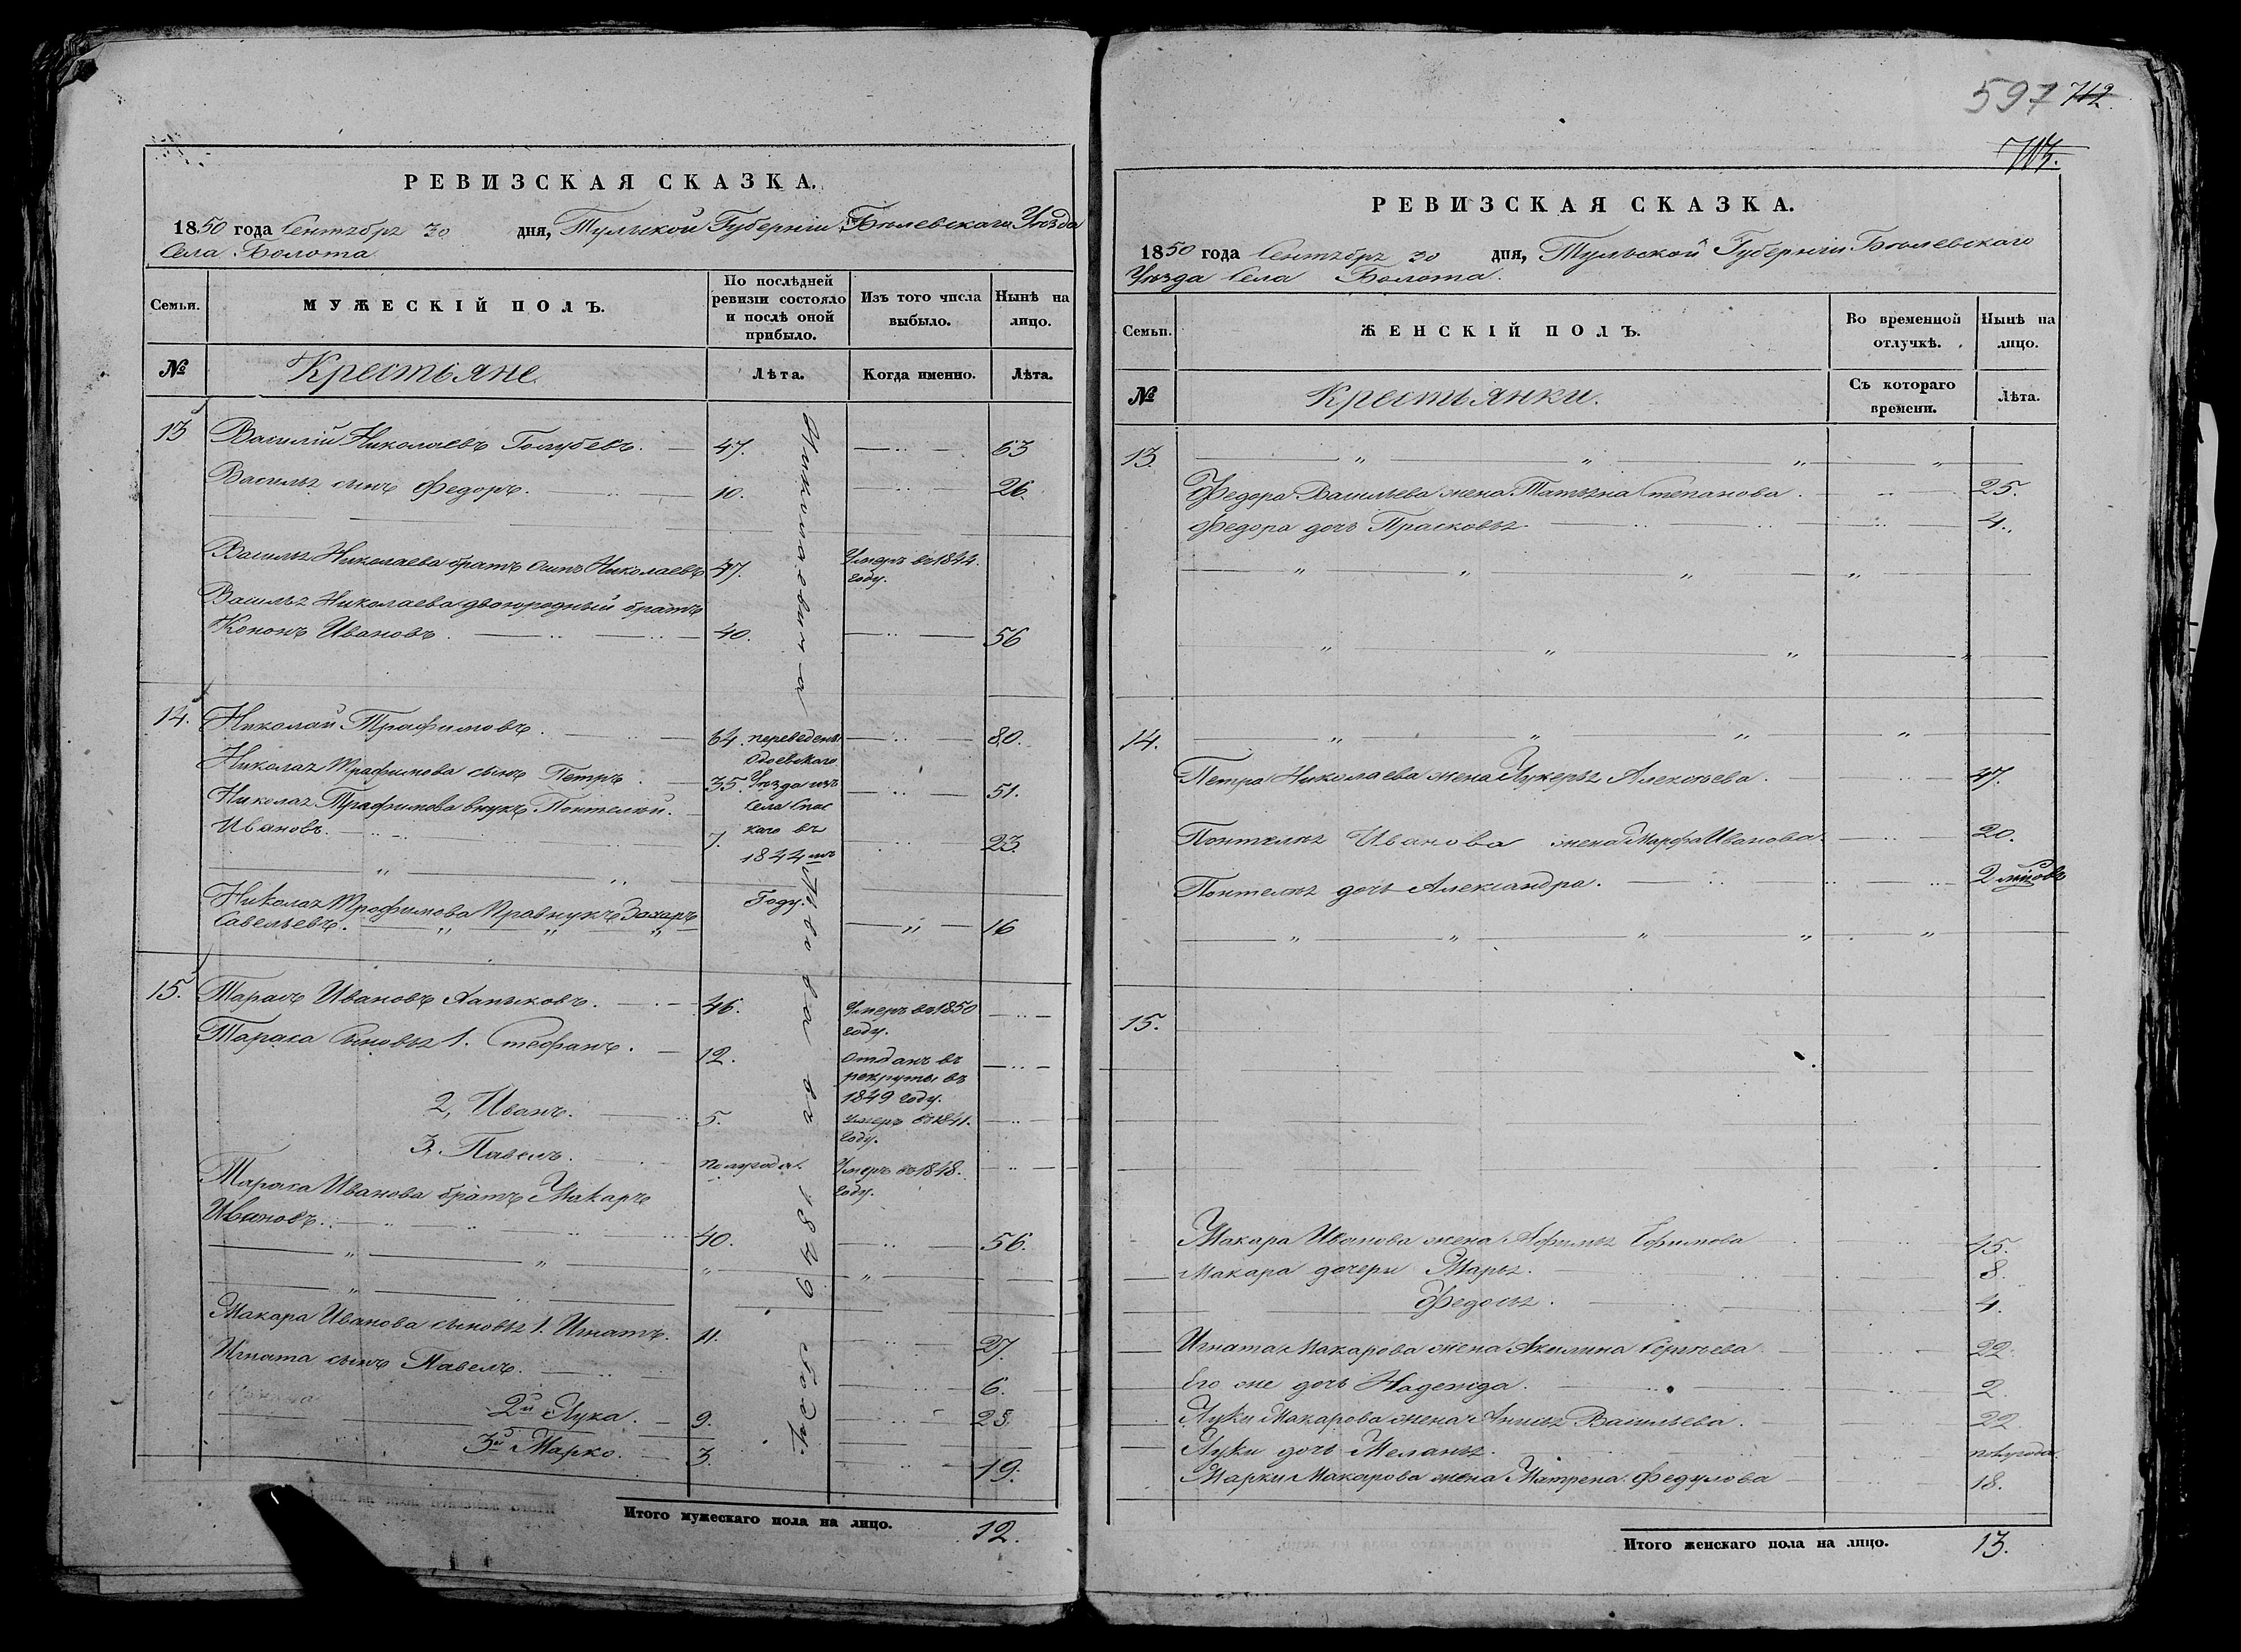 597 712.
713.
РЕВИЗСКАЯ СКАЗКА.
1850 года Сентября 30 дня, Тульской Губерніи Бѣлевскаго Уѣзда
Села Болота
Семьи.
МУЖЕСКІЙ ПОЛЪ.
По послѣдней
ревизіи состояло
и послѣ оной
прибыло.
Изъ того числа
выбыло.
Нынѣ на
лицо.
№
Крестьяне.
Лѣта.
Когда именно.
Лѣта.
13 Василій Николаевъ Голубевъ. 47. 63
Василья сынъ Федоръ. 10. 26.
Василья Николаева братъ Николаевъ 47. Умеръ въ 1844.
году.
Василья Николаева двоюродный братъ
Кононъ Ивановъ. 40. 56
Николаевича
14. Николай Трафимовъ. 64. переведены 80.
Одоевскаго
Николая Трафимова сынъ Петръ. 35. Уѣзда изъ 51.
Села Спас
Николая Трафимова внукъ Понтелей.
каго въ
Ивановъ. 7. 23.
1844мъ
Году.
Николая Трофимова правнукъ Захаръ
Савельевъ. 16
15. Тарасъ Ивановъ Лапыковъ. 46. Умеръ въ 1850
году.
Тараса Сыновья 1. Стефанъ. 12. Отданъ въ
рекруты въ
1849 году.
2, Иванъ. 5. умеръ въ 1841.
году.
3. Павелъ. полугода. Умеръ въ 1848.
году.
Тараса Иванова братъ Макаръ
Ивановъ. 40. 56.
въ 1849 году
Макара Иванова сыновья 1. Игнатъ. 11. 27.
Игната сынъ Павелъ. 6.
2й Лука. 9. 25.
3й Марко. 3. 19.
Итого мужескаго пола на лицо. 12.
РЕВИЗСКАЯ СКАЗКА.
1850 года Сентября 30 дня, Тульской Губерніи Бѣлевскаго
Уѣзда Села Болота.
Семьи.
ЖЕНСКІЙ ПОЛЪ.
Во временной
отлучкѣ.
Нынѣ на
лицо.
№
Крестьянки.
Съ котораго
времени.
Лѣта.
13.
Федора Васильева жена Татьяна Степанова. 25.
Федора дочь Прасковья. 4.
14.
Петра Николаева жена Лукерья Алексѣева. 47.
Понтелея Иванова жена Марфа Иванова. 20.
Понтелея дочь Александра. 2
15.
Макара Иванова жена Афимья Ефимова 45.
Макара дочери Марья. 8.
Федосья. 4.
Игната Макарова жена Акилина Сергѣева 22.
Его же дочь Надежда. 2.
Луки Макарова жена Анисья Васильева. 22
Луки дочь Меланья. полугода.
Марки Макарова жена Матрена Федулова 18.
Итого женскаго пола на лицо. 13.